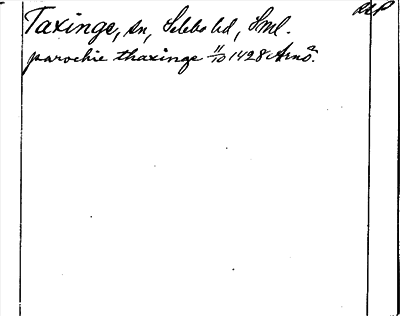 RAP
Taxinge, sn, Selebo hd, Sml.
parochie thaxinge 11/10 1428 Arnö 2.